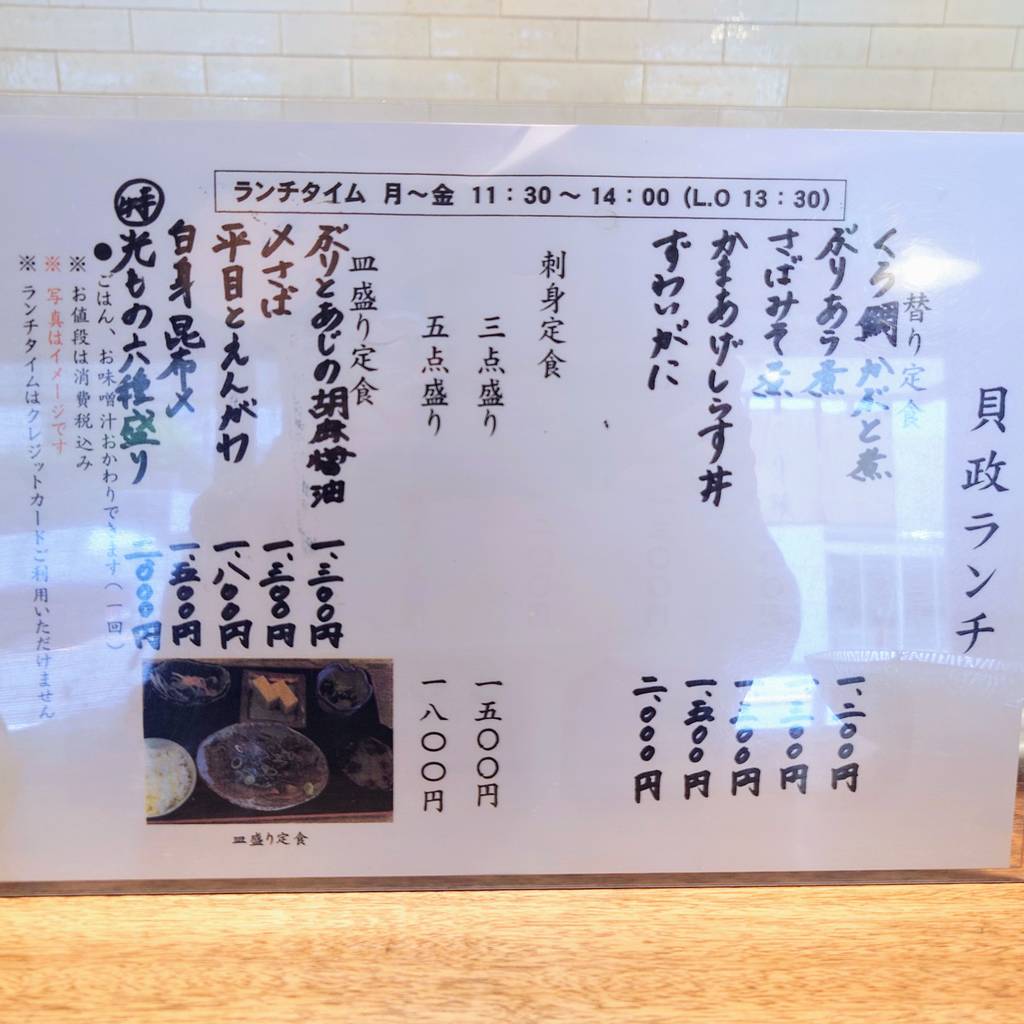 ランチタイム 月～金 11：30～14：00 (L.O 13：30)
貝政ランチ
替り定食
くろ鯛かぶと煮 一、二〇〇円
ぶりあら煮
さばみそ煮
かまあげしらす丼 一、五〇〇円
ずわいがに 二、〇〇〇円
刺身定食
三点盛り 一五〇〇円
五点盛り 一八〇〇円
皿盛り定食
ぶりとあじの胡麻醤油 一、三〇〇円
〆さば 一、三〇〇円
平目とえんがわ 一、八〇〇円
白身昆布〆 一、五〇〇円
㊕光もの六種盛り 二、〇〇〇円
●ごはん、お味噌汁おかわりできます（一回）
※ お値段は消費税込み
※ 写真はイメージです
※ ランチタイムはクレジットカードご利用いただけません
皿盛り定食